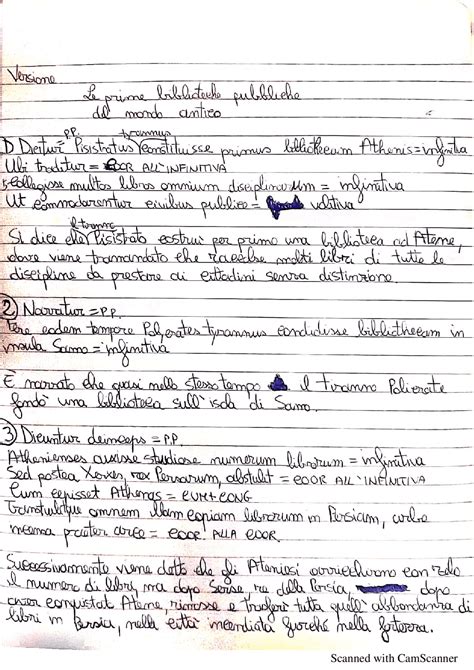 Versione
Le prime biblioteche pubbliche
del mondo antico
P.P. tyrannus
1) Dicitur Pisistratus constituisse primus bibliothecam Athenis = infinitiva
Ubi traditur = COOR ALL'INFINITIVA
Collegisse multos libros omnium disciplinarum = infinitiva
Ut commodarentur civibus publice = volitiva
il tiranno
Si dice che Pisistato costruì per primo una biblioteca ad Atene,
dove viene tramandato che raccolse molti libri di tutte le
discipline da prestare ai cittadini senza distinzione.
2) Narratur = P.P.
Fere eodem tempore Polycrates tyrannus condidisse bibliothecam in
insula Samo = infinitiva
È narrato che quasi nello stesso tempo il tiranno Policrate
fondò una biblioteca sull'isola di Samo.
3) Dicuntur deinceps = P.P.
Athenienses auxisse studiose numerum librorum = infinitiva
Sed postea Xerxes, rex Persarum, abstulit = COOR ALL'INFINITIVA
Cum cepisset Athenas = CUM+CONG
Transtulitque omnem illam copiam librorum in Persiam, urbe
incensa praeter arce = COOR. ALLA COOR.
Successivamente viene detto che gli Ateniesi arricchirono con zelo
il numero di libri, ma dopo Serse, re della Persia, dopo
aver conquistato Atene, rimosse e trasferì tutta quell'abbondanza di
libri in Persia, nella città incendiata fuorché nella fortezza.
Scanned with CamScanner